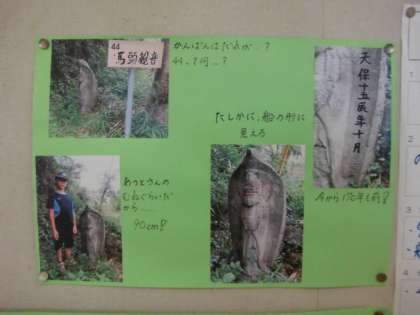 44
馬頭観音
かんばんはだれが…?
44って何…?
天保十五辰年十月
たしかに、船の形に
見える
あつとさんの
むねぐらいだ
から……
90cm!
今から170年も前!